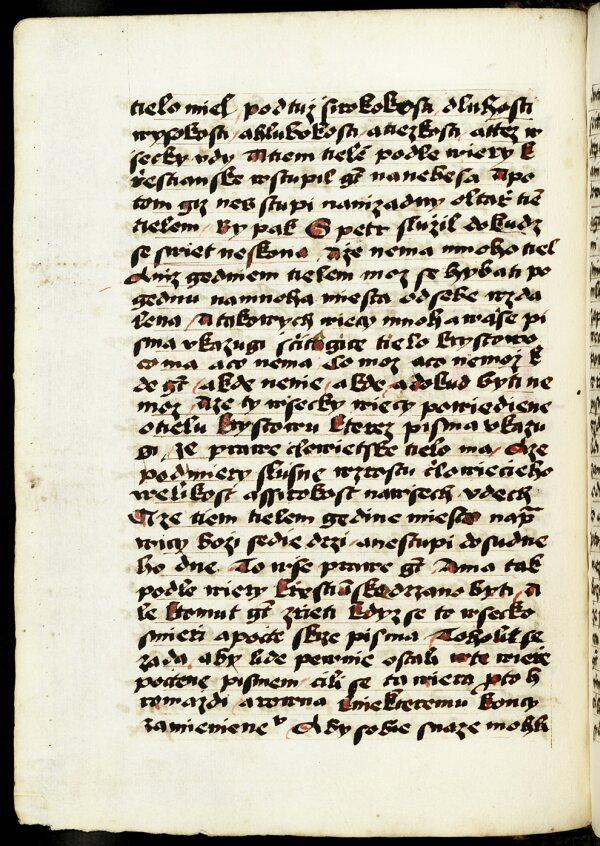 tielo miel / pod tuz ssirokokosti dluhosti
wysokosti / a hlubokosti / a tiezkosti / a ttez w
ssecky vdy / A tiem tielē podle wiery k
rzestianske wstupil gt na nebesa / A po
tom giz nes stupi na nizadny oltarz tiē
tielem / By pak S petr sluzil dokudz
se swiet neskona / A ze nema mnoho tiel
Aniz gednem tielem moz se hybati po
gednu na mnoha miesta od sebe wzda
lena / A takowych wiecy mnoha wasse pi
sma vkazugi sscitugice tielo krystowo
co ma a co nema / Co moz a co nemoz k
de gt / a kde nenie / a kde / a dokud byti ne
moz / A ze ty wssecky wiecy powiediene
o tielu krystowu kterez pisma vkazu
gi / ze prawe clowietske tielo ma / A ze
pod miery slussne wzrostu clowiecieho
welikost a ssirokost na wssech vdech
A ze tiem tielem gedine miesto na pra
wicy bozi sedie drzi / a nestupi do sudne
ho dne / To wsse prawe gt / A ma tak
podle wiery krestiūske drzano byti / A
le k tomut gt zrieti kdyz se to wssecko
smieri a pocte skrze pisma / Toholit se
zada / aby lide pewnie ostali w te wierze
poctene pismem / cili se ta wiera proto h
romazdi / a rowna k niekteremu koncy
zamienene v / Aby sobie snaze mohli